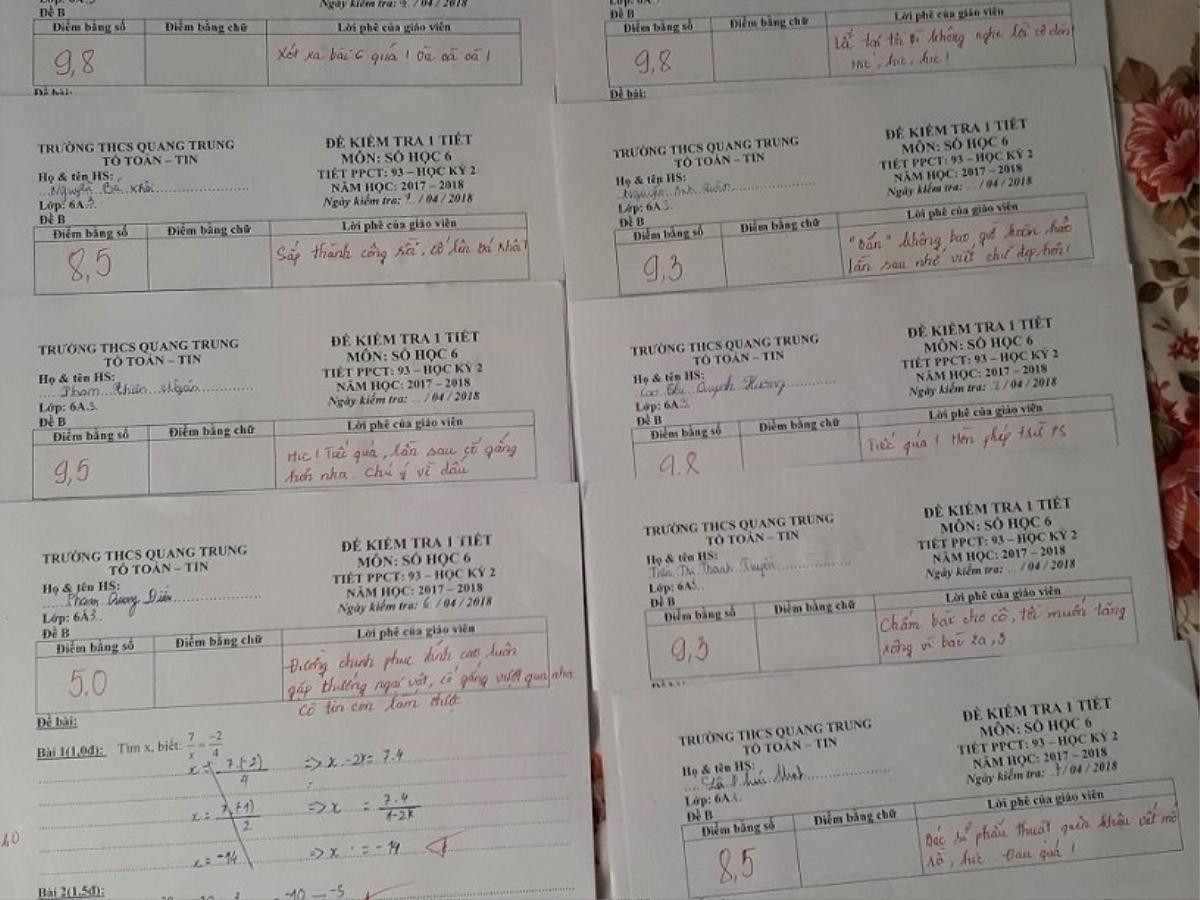 Lớp: 6A3
Đề B
Ngày kiểm tra: 7 / 04 / 2018
Điểm bằng số Điểm bằng chữ Lời phê của giáo viên
9,8
Xót xa bài 6 quá ! Òa òa òa !
Đề bài:
TRƯỜNG THCS QUANG TRUNG
TỔ TOÁN – TIN
Họ & tên HS:
Nguyễn Bá Khôi
Lớp: 6A3
Đề B
ĐỀ KIỂM TRA 1 TIẾT
MÔN: SỐ HỌC 6
TIẾT PPCT: 93 – HỌC KỲ 2
NĂM HỌC: 2017 – 2018
Ngày kiểm tra: 7 / 04 / 2018
Điểm bằng số Điểm bằng chữ Lời phê của giáo viên
8,5
Sắp thành công rồi, cố lên Bá Khôi !
TRƯỜNG THCS QUANG TRUNG
TỔ TOÁN – TIN
Họ & tên HS:
Phạm Thiên Ngân
Lớp: 6A3
Đề B
ĐỀ KIỂM TRA 1 TIẾT
MÔN: SỐ HỌC 6
TIẾT PPCT: 93 – HỌC KỲ 2
NĂM HỌC: 2017 – 2018
Ngày kiểm tra: ... / 04 / 2018
Điểm bằng số Điểm bằng chữ Lời phê của giáo viên
9,5
Hic ! Tiếc quá, lần sau cố gắng
hơn nha. Chú ý về dấu
TRƯỜNG THCS QUANG TRUNG
TỔ TOÁN – TIN
Họ & tên HS:
Phạm Quang
Lớp: 6A3
Đề B
ĐỀ KIỂM TRA 1 TIẾT
MÔN: SỐ HỌC 6
TIẾT PPCT: 93 – HỌC KỲ 2
NĂM HỌC: 2017 – 2018
Ngày kiểm tra: 6 / 04 / 2018
Điểm bằng số Điểm bằng chữ Lời phê của giáo viên
5,0
Đường chinh phục đỉnh cao luôn
gặp chướng ngại vật, cố gắng vượt qua nha
cô tin con làm được
Đề bài:
Bài 1(1,0đ): Tìm x, biết: 7/x = -2/4
x = 7.(-2)/4 => x.-2x= 7.4
x = 7.(-1)/2 => x = 7.4/1-2x
x = -14 => x = -14
Bài 2(1,5đ):
Đề B
Điểm bằng số Điểm bằng chữ Lời phê của giáo viên
9,8
không nghe lời cô dặn
Hic, hic, hic !
Đề bài:
TRƯỜNG THCS QUANG TRUNG
TỔ TOÁN – TIN
Họ & tên HS:
Nguyễn Anh
Lớp: 6A3
Đề B
ĐỀ KIỂM TRA 1 TIẾT
MÔN: SỐ HỌC 6
TIẾT PPCT: 93 – HỌC KỲ 2
NĂM HỌC: 2017 – 2018
Ngày kiểm tra: ... / 04 / 2018
Điểm bằng số Điểm bằng chữ Lời phê của giáo viên
9,3
không bao giờ hoàn hảo
lần sau nhớ viết chữ đẹp hơn !
TRƯỜNG THCS QUANG TRUNG
TỔ TOÁN – TIN
Họ & tên HS:
Cao Thị Quỳnh Hương
Lớp: 6A3
Đề B
ĐỀ KIỂM TRA 1 TIẾT
MÔN: SỐ HỌC 6
TIẾT PPCT: 93 – HỌC KỲ 2
NĂM HỌC: 2017 – 2018
Ngày kiểm tra: 7 / 04 / 2018
Điểm bằng số Điểm bằng chữ Lời phê của giáo viên
9,8
Tiếc quá ! Hờn phép trừ PS
TRƯỜNG THCS QUANG TRUNG
TỔ TOÁN – TIN
Họ & tên HS:
Trần Thị Thanh Tuyền
Lớp: 6A3
Đề B
ĐỀ KIỂM TRA 1 TIẾT
MÔN: SỐ HỌC 6
TIẾT PPCT: 93 – HỌC KỲ 2
NĂM HỌC: 2017 – 2018
Ngày kiểm tra: ... / 04 / 2018
Điểm bằng số Điểm bằng chữ Lời phê của giáo viên
9,3
Chấm bài cho cô, tôi muốn tăng
xông vì bài 2a, 3
TRƯỜNG THCS QUANG TRUNG
TỔ TOÁN – TIN
Họ & tên HS:
Lớp: 6A3
Đề B
ĐỀ KIỂM TRA 1 TIẾT
MÔN: SỐ HỌC 6
TIẾT PPCT: 93 – HỌC KỲ 2
NĂM HỌC: 2017 – 2018
Ngày kiểm tra: 7 / 04 / 2018
Điểm bằng số Điểm bằng chữ Lời phê của giáo viên
8,5
Bác sĩ phẫu thuật quên khâu vết mổ
rồi, hic. Đau quá !